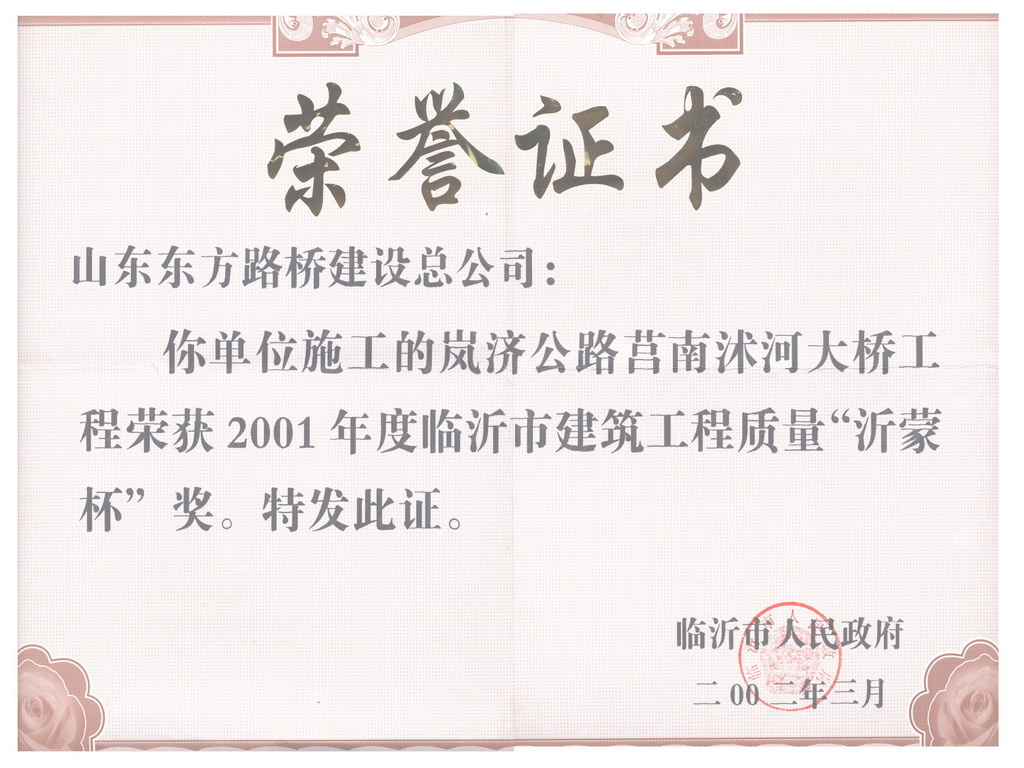 荣誉证书
山东东方路桥建设总公司：
你单位施工的岚济公路莒南沭河大桥工
程荣获2001年度临沂市建筑工程质量“沂蒙
杯”奖。特发此证。
临沂市人民政府
二00二年三月
临沂市人民政府